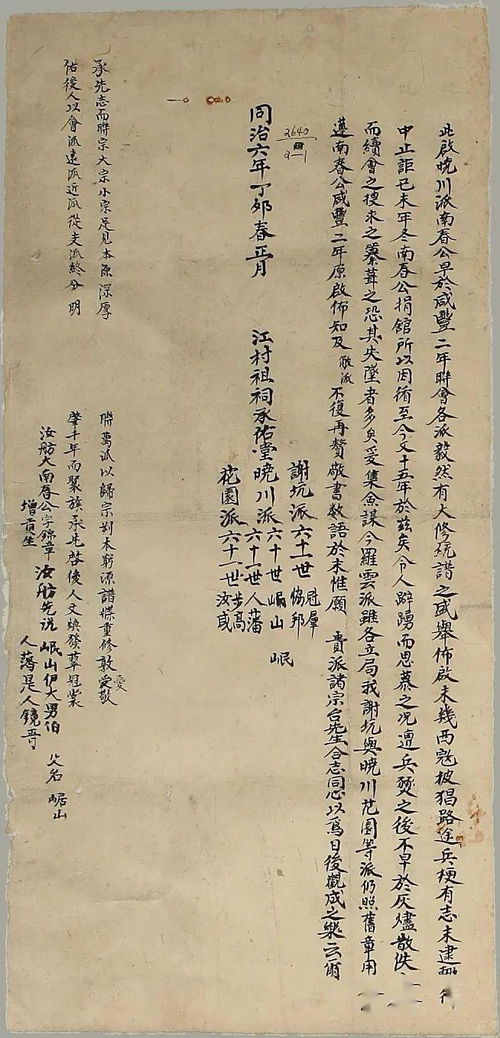 此啟曉川派南春公早於咸豐二年聯會各派毅然有大修統譜之盛舉佈啟未幾西寇披猖路途兵梗有志未逮
中止詎己未年冬南春公捐館所以因循至今又十五年於茲矣令人踴而思慕之況遭兵燹之後不早於灰燼散佚
而續會之搜求之纂葺之恐其失墜者多矣爰集僉謀今羅雲派雖各立局我謝坑與曉川花園等派仍照舊章用
遵南春公咸豐二年原啟佈知及敝派不復再贅敬書數語於末惟願貴派諸宗台先生合志同心以爲日後觀成之樂云爾
2640
2-1
同治六年丁卯春正月
江村祖祠承佑堂
謝坑派六十一世冠羣協邦
曉川派六十世崌山岷
六十一世人藩
花園派六十一世步高汝咸
承先志而聯宗大宗小宗足見本原深厚
佑後人以會派遠派近派從支派終分明
聯萬派以歸宗剖本窮源譜牒重修敦愛敬
愛
肇千年而聚族承先啓後人文煥發萃冠裳
汝舫大南春公字錦章汝舫先說岷山伊大男伯父名崌山
增貢生
人藩是人鏡哥